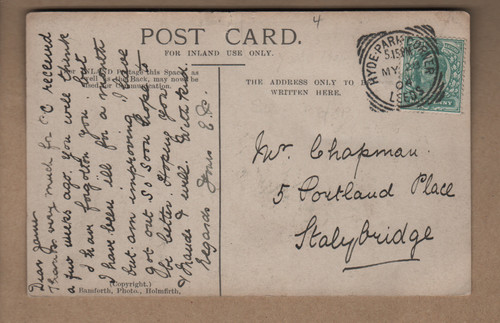 4
POST CARD.
FOR INLAND USE ONLY.
For INLAND Postage this Space, as
well as the Back, may now be
used for Communication.
THE ADDRESS ONLY TO BE
WRITTEN HERE.
HYDE PARK CORNER
5.15PM
MY
LEEDS
Dear James
Thanks very much for P.C received
a few weeks ago. You will think
I have forgotten you but
I have been ill for a month
but am improving. I have
got out so soon hope to
be better. Hoping you
& Maude & well. With kind
regards Yours E.S.
Mr. Chapman.
5 Portland Place
Stalybridge
(Copyright.)
Bamforth, Photo., Holmfirth.